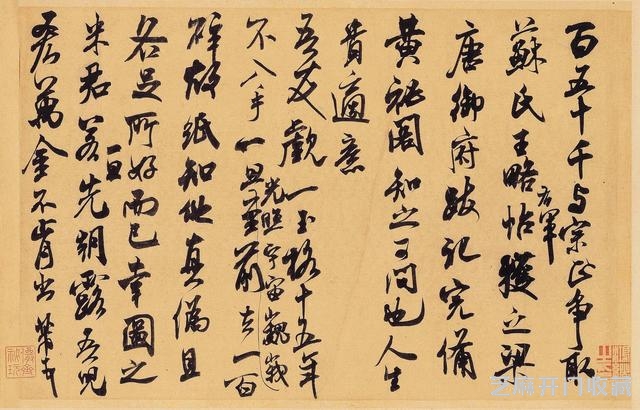 百五十千与宗正争取
蘇氏王略帖右軍獲之梁
唐御府跋記完備
黄秘閣知之可問也人生
貴適意
吾友覷一玉格十五年
不入手一旦光照宇宙巍峨至前去一百
碎故紙知他真偽且
各足所好而已幸圖之
米君若一旦先朝露吾兒
吝萬金不肯出芾
芝麻开门收藏